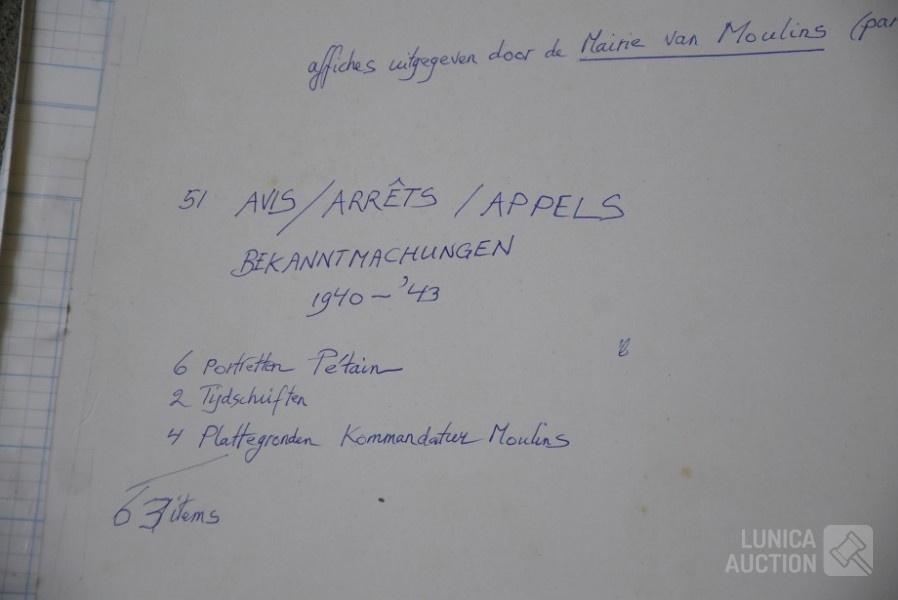 affiches uitgegeven door de Mairie van Moulins (par
51 AVIS / ARRÊTS / APPELS
BEKANNTMACHUNGEN
1940 – '43
6 Portretten Pétain
2 Tijdschriften
4 Plattegronden Kommandatur Moulins
63 items
LUNICA
AUCTION